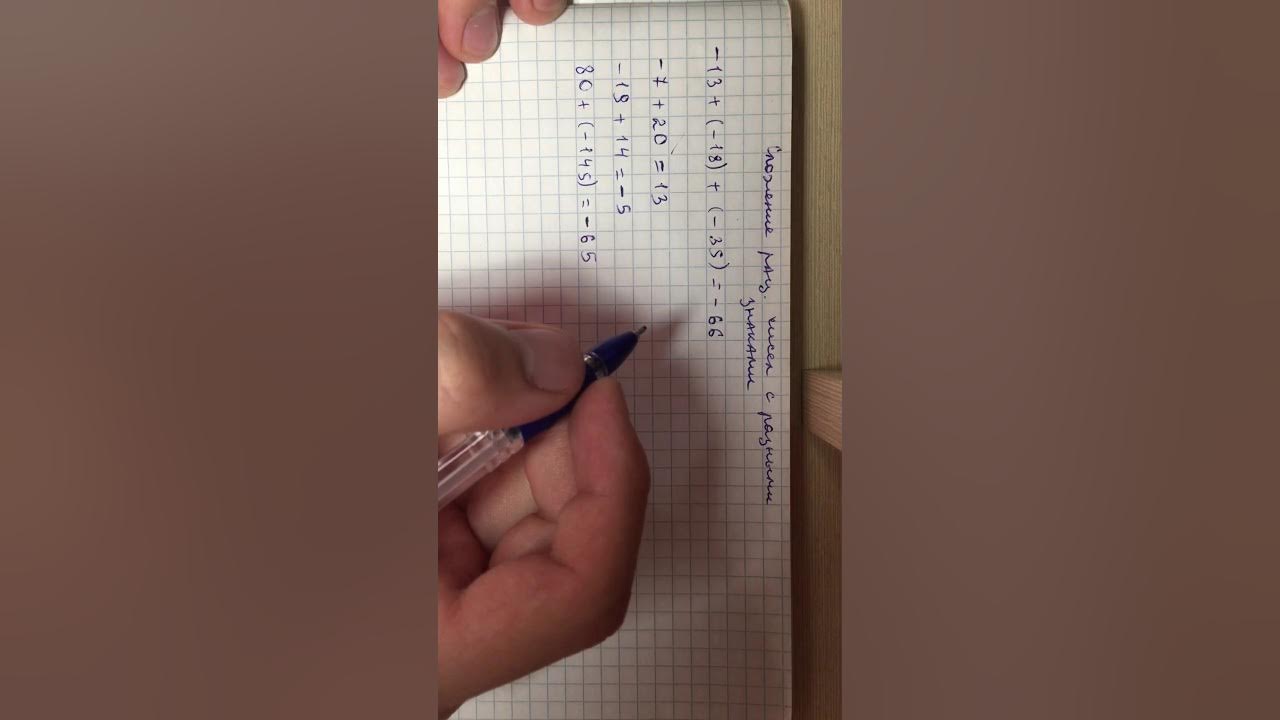 Сложение рац. чисел с разными
знаками
-13 + (-18) + (-35) = -66
-7 + 20 = 13
-19 + 14 = -5
80 + (-145) = -65